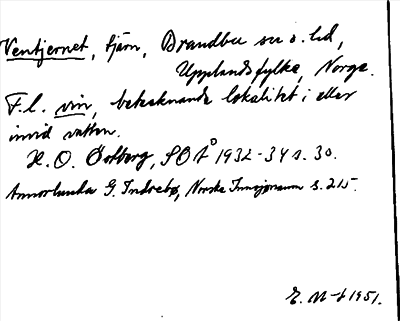 Ventjernet, tjärn, Brandbu sn o. hd,
Upplandsfylke, Norge.
F. l. vin, betecknande lokalitet i eller
invid vatten.
H. O. Östberg, SOÅ 1932-34 s. 30.
Annorlunda G. Indrebø, Norske Innsjønavn s. 215.
E. M-t 1951.